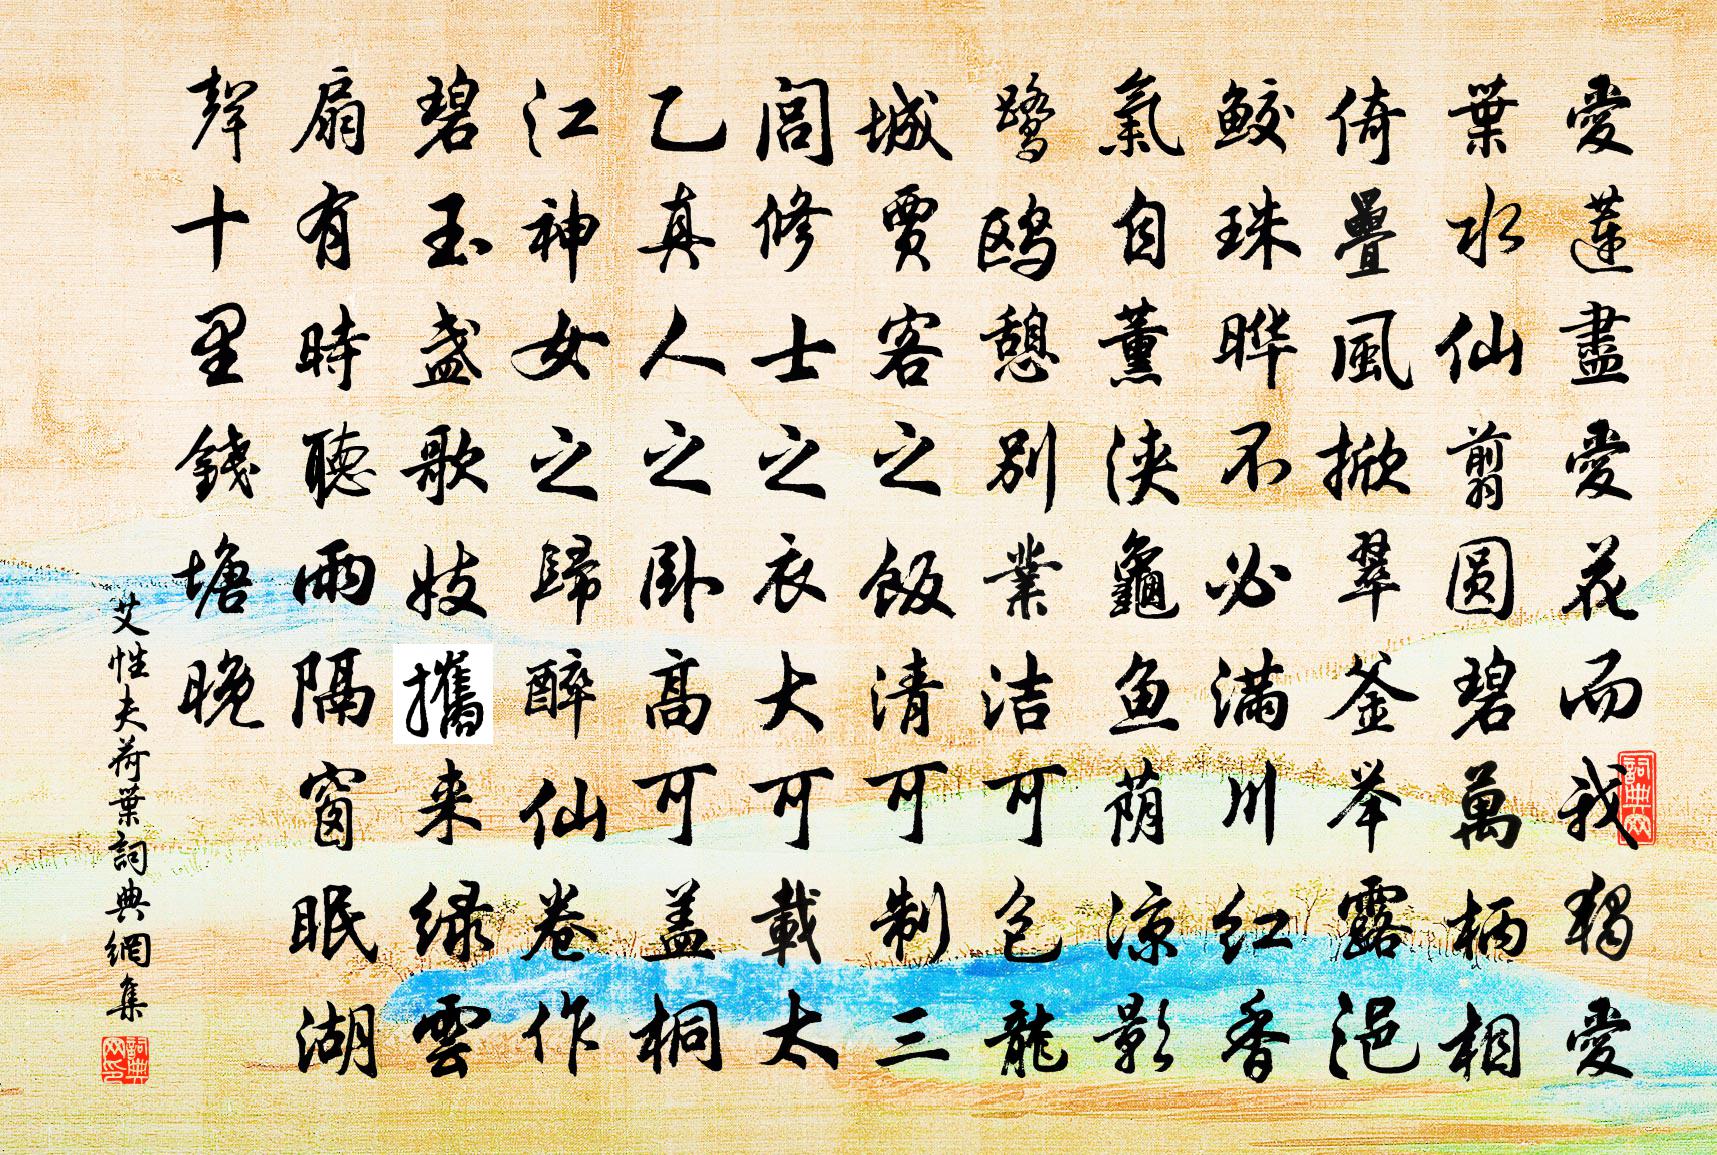 愛蓮盡愛花而我獨愛
葉水仙剪圆碧萬柄相
倚疊風掀翠釜举露浥
鲛珠晔不必满川红香
氣自薰浹龜鱼荫凉影
鹭鸥憩别業洁可包龍
城賈客之飯清可制三
閭修士之衣大可載太
乙真人之卧高可盖桐
江神女之歸醉仙卷作
碧玉盏歌妓攜来绿雲
扇有時聽雨隔窗眠湖
聲十里錢塘晚
艾性夫荷葉詞典網集
詞典网
詞典网印